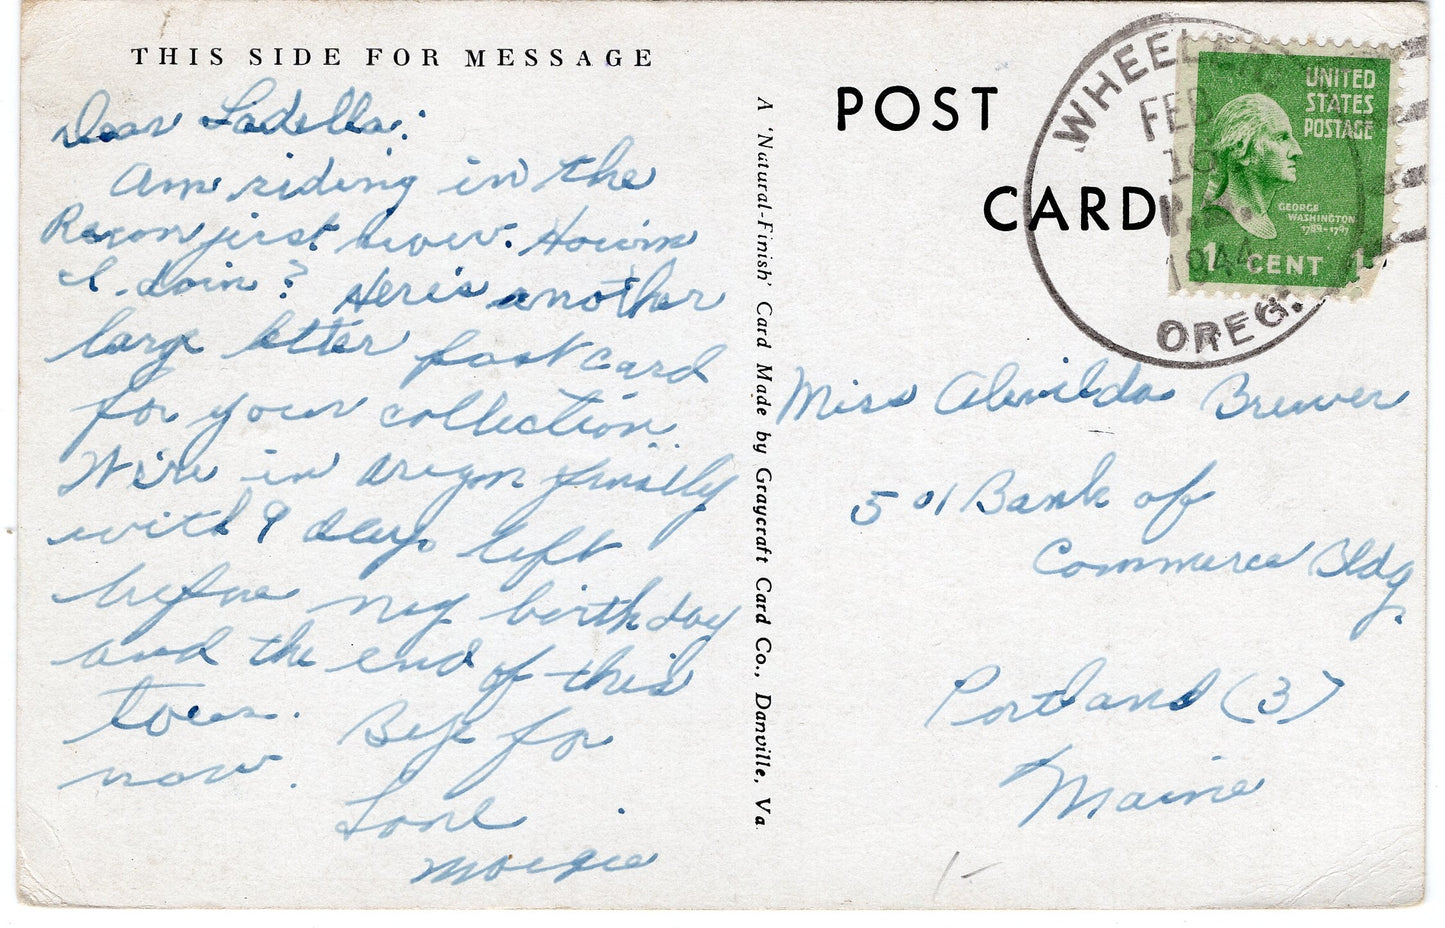 THIS SIDE FOR MESSAGE
Dear Ladella:
Am riding in the
Recon just now. Howm
I doin? Here's another
large letter post card
for your collection.
We're in Oregon finally
with 9 days left
before my birthday
and the end of this
tour. Bye for
now.
Love
Margie
A 'Natural-Finish' Card Made by Graycraft Card Co., Danville, Va.
POST
CARD
WHEELER
FEB
10
1944
OREG.
UNITED
STATES
POSTAGE
GEORGE
WASHINGTON
1789-1797
1 CENT 1
Miss Alwilda Brewer
501 Bank of
Commerce Bldg.
Portland (3)
Maine
1-